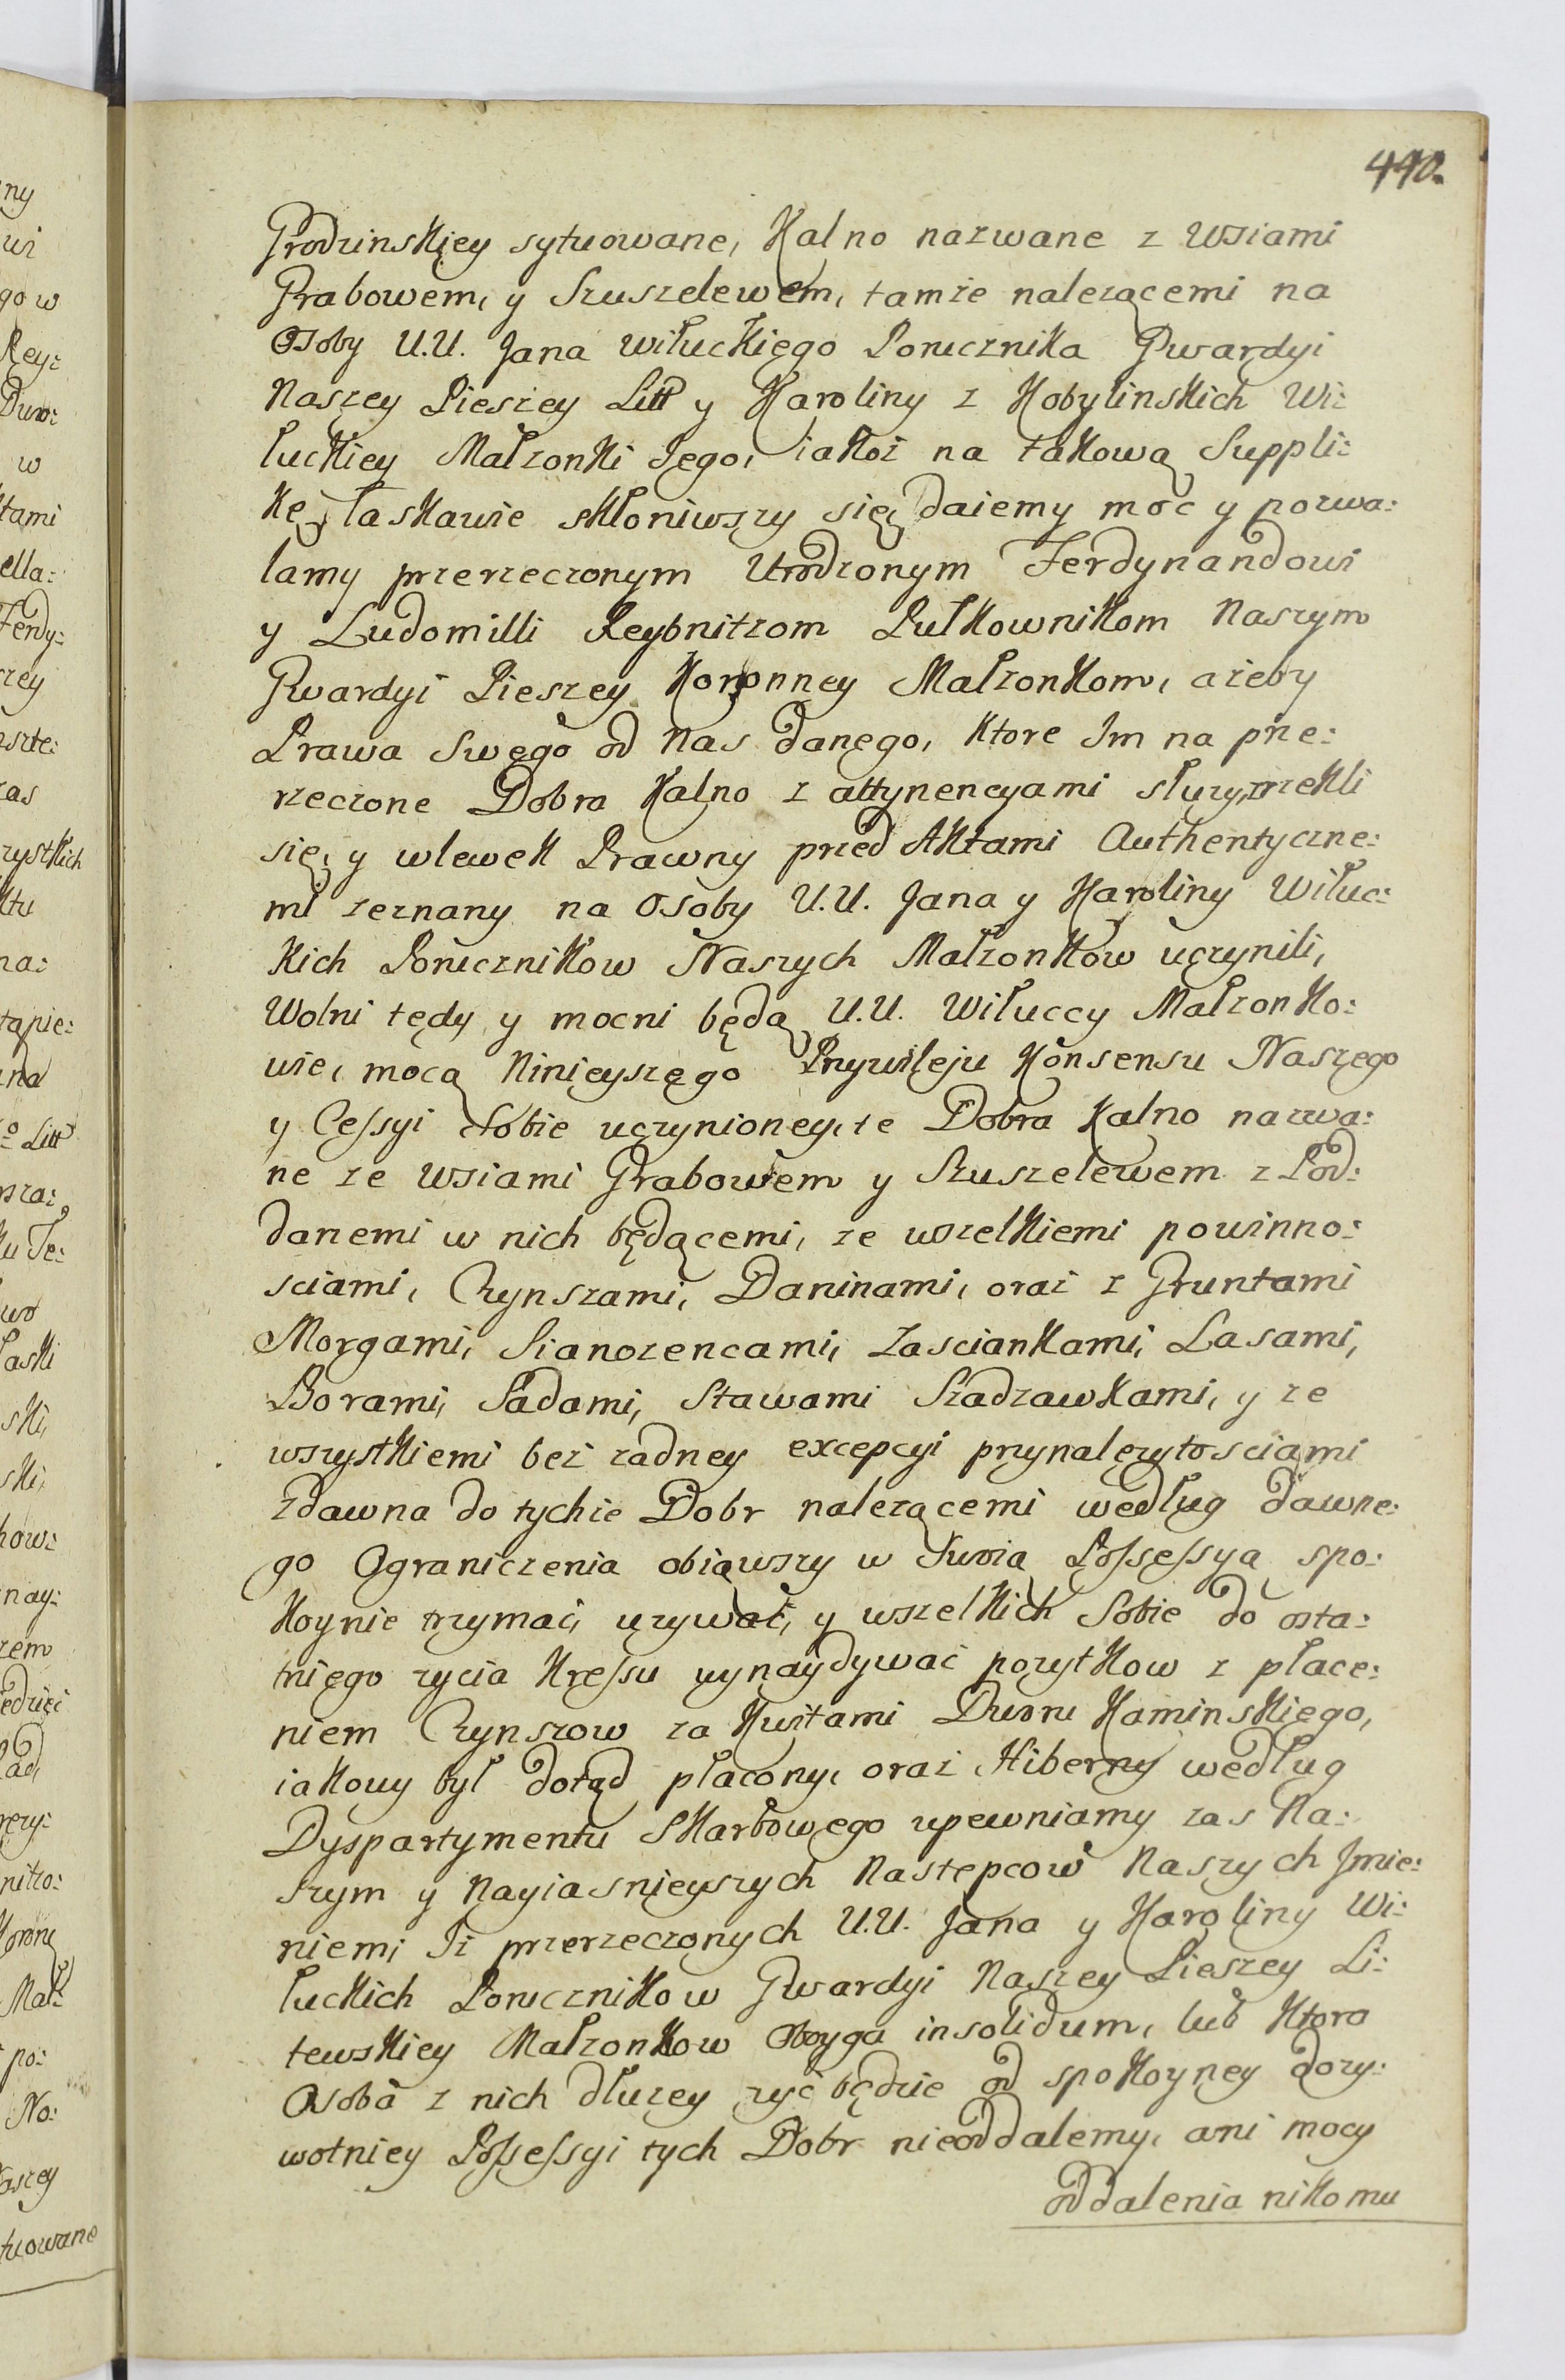 440.
Grodzinskiey sytuowane, Kalno nazwane z Wsiami
Grabowem, y Szuszelewem, tamże należącemi na
Osoby U.U. Jana Wiłuckiego Porucznika Gwardyi
Naszey Pieszey Litt y Karoliny z Kobylinskich Wi:
łuckiey Małżonki Jego, iakoż na takową Suppli:
kę łaskawie skłoniwszy się, daiemy moc y pozwa:
lamy przerzeczonym Urodzonym Ferdynandowi
y Ludomilli Reybnitzom Pułkownikom Naszym
Gwardyi Pieszey Koronney Małżonkom, ażeby
Prawa Swego od Nas danego, ktore Im na prze:
rzeczone Dobra Kalno z attynencyami słuzy, zrzekli
się, y wlewek Prawny przed Aktami Authentyczne:
mi zeznany na Osoby U.U. Jana y Karoliny Wiłuc:
kich Poruczników Naszych Małżonków uczynili,
Wolni tedy y mocni będą U.U. Wiłuccy Małżonko:
wie, mocą Ninieyszego Przywileju Konsensu Naszego
y Cessyi Sobie uczynioney, te Dobra Kalno nazwa:
ne ze Wsiami Grabowem y Szuszelewem z Pod:
danemi w nich będącemi, ze wszelkiemi powinno:
sciami, Czynszami, Daninami, oraz z Gruntami
Morgami, Sianozencami, Zasciankami, Lasami,
Borami, Sadami, Stawami Sadzawkami, y ze
wszystkiemi bez zadney excepcyi przynależytosciami
zdawna do tychże Dobr należącemi według dawne:
go Ograniczenia obiąwszy w Swoią Possessyą spo:
koynie trzymać, uzywać, y wszelkich Sobie do osta:
tniego zycia kressu wynaydywać pozytkow z płace:
niem Czynszow za Kwitami Dworu Kaminskiego,
iakowy był dotąd płacony, oraz Hiberny według
Dyspartymentu Skarbowego upewniamy zas Na:
szym y Nayiasnieyszych Nastepcow Naszych Jmie:
niem, Iż przerzeczonych U.U. Jana y Karoliny Wi:
łuckich Porucznikow Gwardyi Naszey Pieszey Li:
tewskiey Małżonkow Oboyga insolidum, lub ktora
Osoba z nich dłuzey zyć będzie od spokoyney dozy:
wotniey Possessyi tych Dobr nieoddalemy, ani mocy
oddalenia nikomu